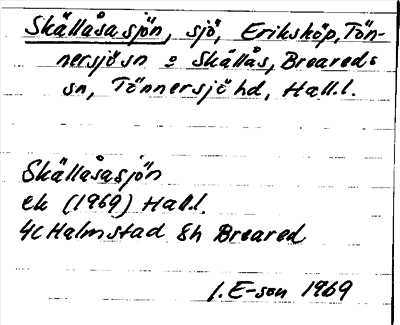 Skällåsasjön, sjö, Eriksköp, Tön-
nersjö sn o Skällås, Breareds
sn, Tönnersjö hd, Hall.
Skällåsasjön
ek (1969) Hall.
4C Halmstad 8h Breared
1969